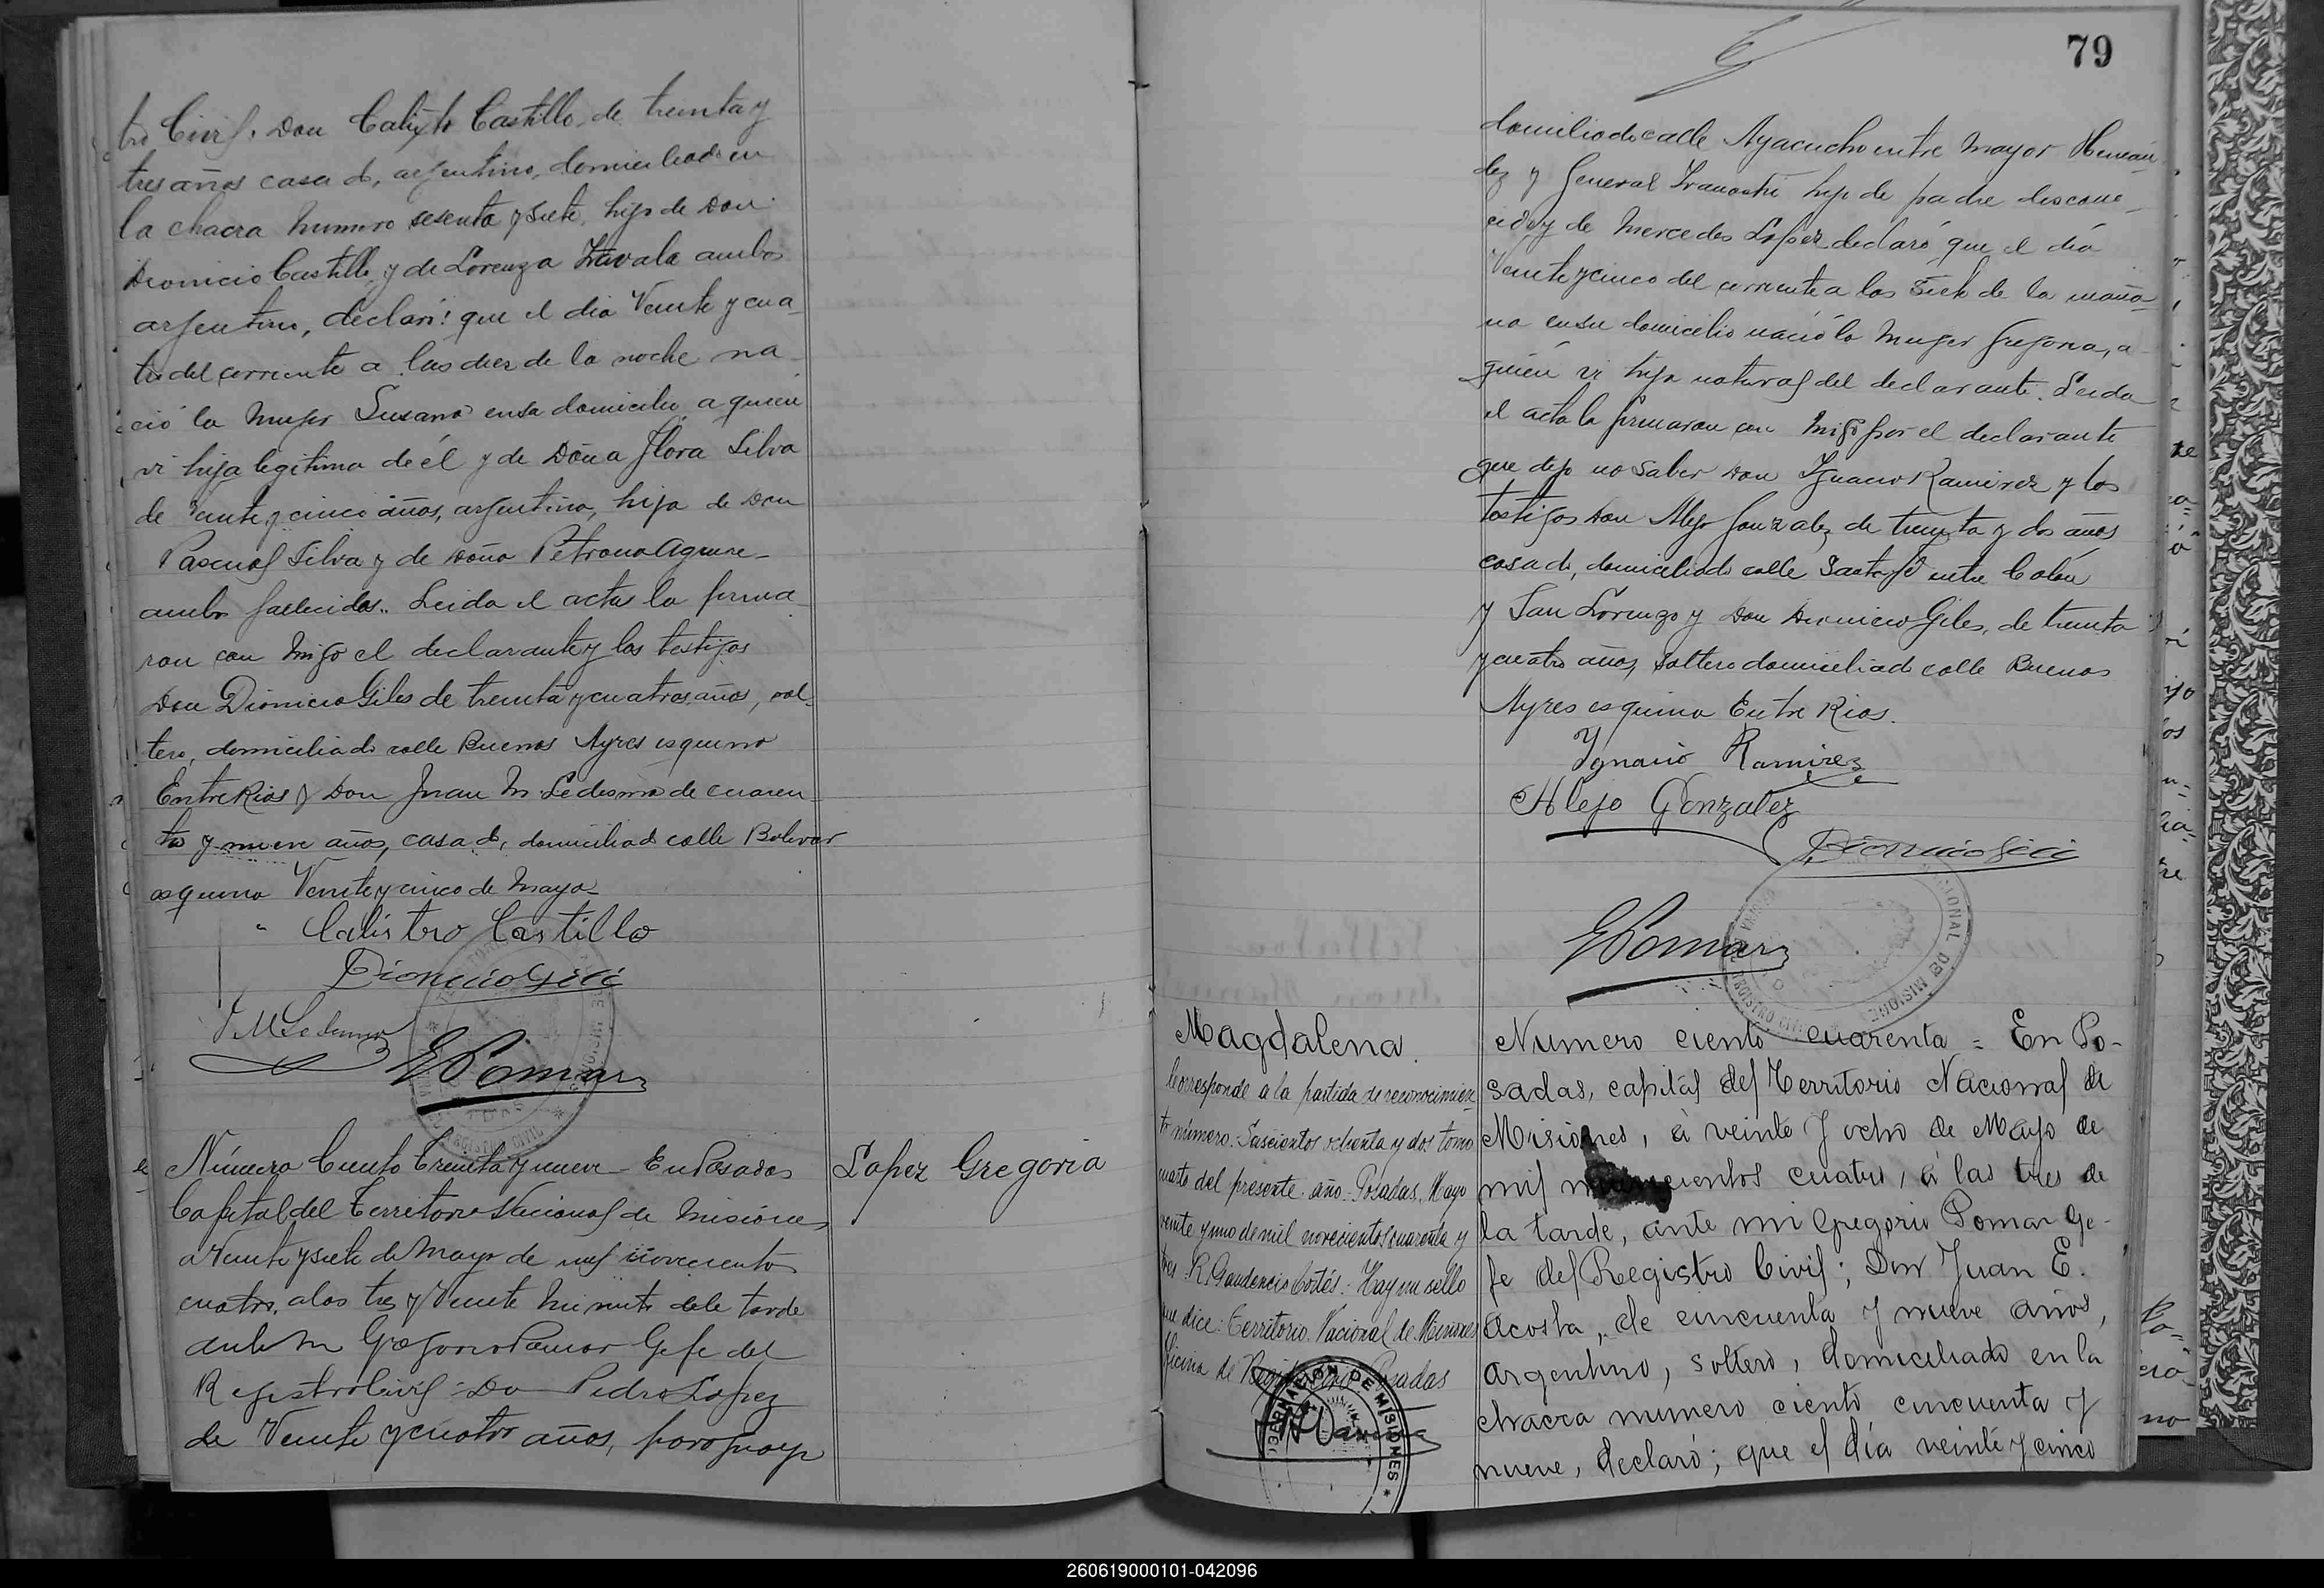 tro Civil. Don Calixto Castillo, de treinta y
tres años casado, argentino, domiciliado en
la chacra numero sesenta y siete, hijo de Don
Dionicio Castillo, y de Lorenza Zavala ambos
argentino, declaró: que el dia Veinte y cua-
tro del corriente a las diez de la noche na-
ció la Mujer Susana en su domicilio, a quien
vi hija legitima de él y de Doña Flora Silva
de veinte y cinco años, argentina, hija de Don
Pascual Silva y de Doña Petrona Aguirre
ambos fallecidos. Leida el acta la firma
ron con migo el declarante y los testigos
Don Dionicio Giles de treinta y cuatros años, sol-
tero, domiciliado calle Buenos Ayres esquina
Entre Rios y Don Juan M. Ledesma de cuaren-
ta y nueve años, casado, domiciliado calle Bolivar
esquina Veinte y cinco de Mayo
Calistro Castillo
Dionicio Gili
J M Ledesma
G Pomar
Número Ciento Treinta y nueve - En Posadas
Capital del Territorio Nacional de Misiones
a Veinte y siete de Mayo de mil novecientos
cuatro, a las tres y Veinte minuto dele tarde
ante m Gregorio Pomar Gefe del
Registro Civil: Do Pedro Lopez
de Veinte y cuatro años, paraguayo
Lopez Gregoria
79
domiliado calle Ayacucho entre Mayor Hernán-
dez y General hijo de padre descono-
cido y de Mercedes Lopez declaró que el día
Veinte y cinco del corriente a las siete de la maña-
na en su domicilio nació la Mujer Gregoria, a
quien vi hija natural del declarante. Leida
el acta la firmaron con migo por el declarante
que dijo no saber Don Ignacio Ramirez y los
testigos Don Alejo Gonzalez de treinta y dos años
casado, domiciliado calle Santa Fé entre Colón
y San Lorenzo y Don Dionicio Giles, de treinta
y cuatro años, soltero domiciliado calle Buenos
Ayres esquina Entre Rios.
Ygnacio Ramirez
Alejo Gonzalez
Dionicio Gili
G Pomar
Magdalena.
Corresponde a la partida de reconocimien-
to número. Seiscientos ochenta y dos tomo
cuarto del presente año. Posadas, Mayo
veinte y uno de mil novecientos cuarenta y
tres. R. Gaudencio Cortés. Hay un sello
que dice: Territorio Nacional de Misiones
Oficina de Registro Civil Posadas
GOBERNACIÓN DE MISIONES
Numero ciento cuarenta = En Po-
sadas, capital del Territorio Nacional de
Misiones, à veinte y ocho de Mayo de
mil novecientos cuatro, à las tres de
la tarde, ante mi Gregorio Pomar Ge-
fe del Registro Civil; Don Juan E.
Acosta, de cincuenta y nueve años,
Argentino, soltero, domiciliado en la
chacra numero ciento cincuenta y
nueve, declaró; que el día veinte y cinco
260619000101-042096